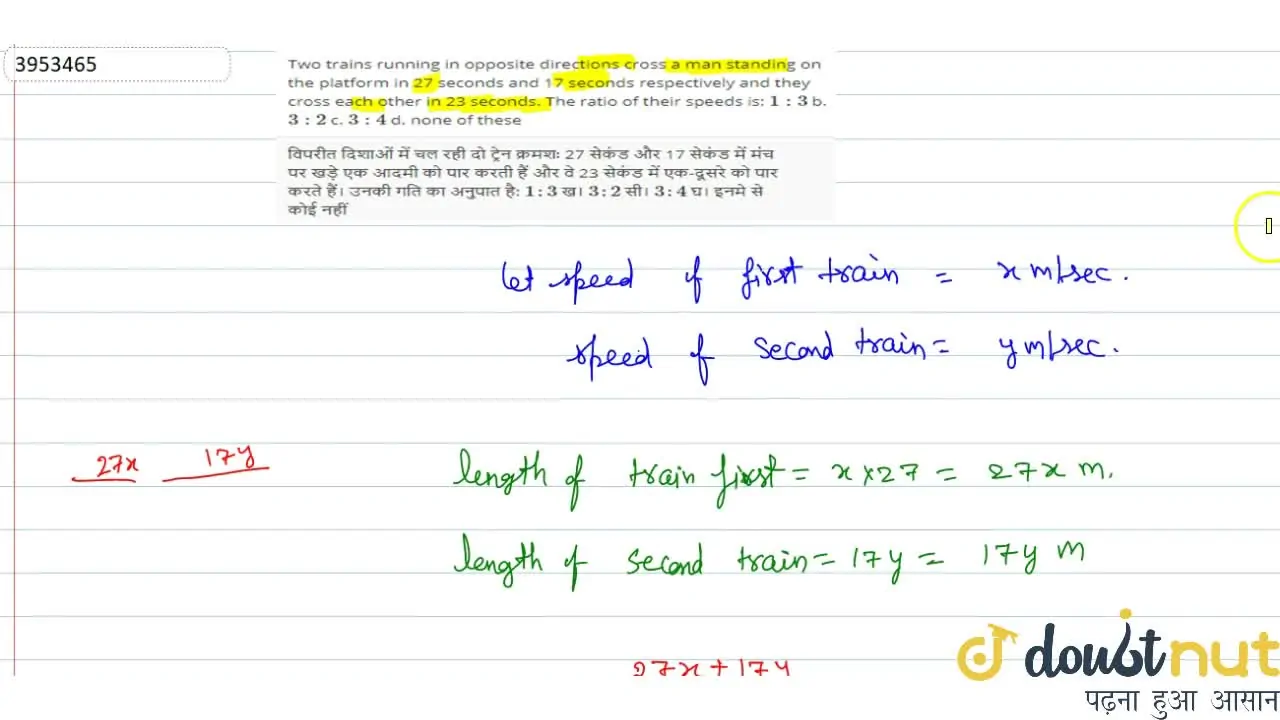 3953465
Two trains running in opposite directions cross a man standing on
the platform in 27 seconds and 17 seconds respectively and they
cross each other in 23 seconds. The ratio of their speeds is: 1 : 3 b.
3 : 2 c. 3 : 4 d. none of these
विपरीत दिशाओं में चल रही दो ट्रेन क्रमशः 27 सेकंड और 17 सेकंड में मंच
पर खड़े एक आदमी को पार करती हैं और वे 23 सेकंड में एक-दूसरे को पार
करते हैं। उनकी गति का अनुपात है: 1 : 3 ख। 3 : 2 सी। 3 : 4 घ। इनमे से
कोई नहीं
let speed of first train = x m/sec.
speed of second train = y m/sec.
27x 17y
length of train first = x×27 = 27x m.
length of second train = 17y = 17y m
27x + 17y
doubtnut
पढ़ना हुआ आसान